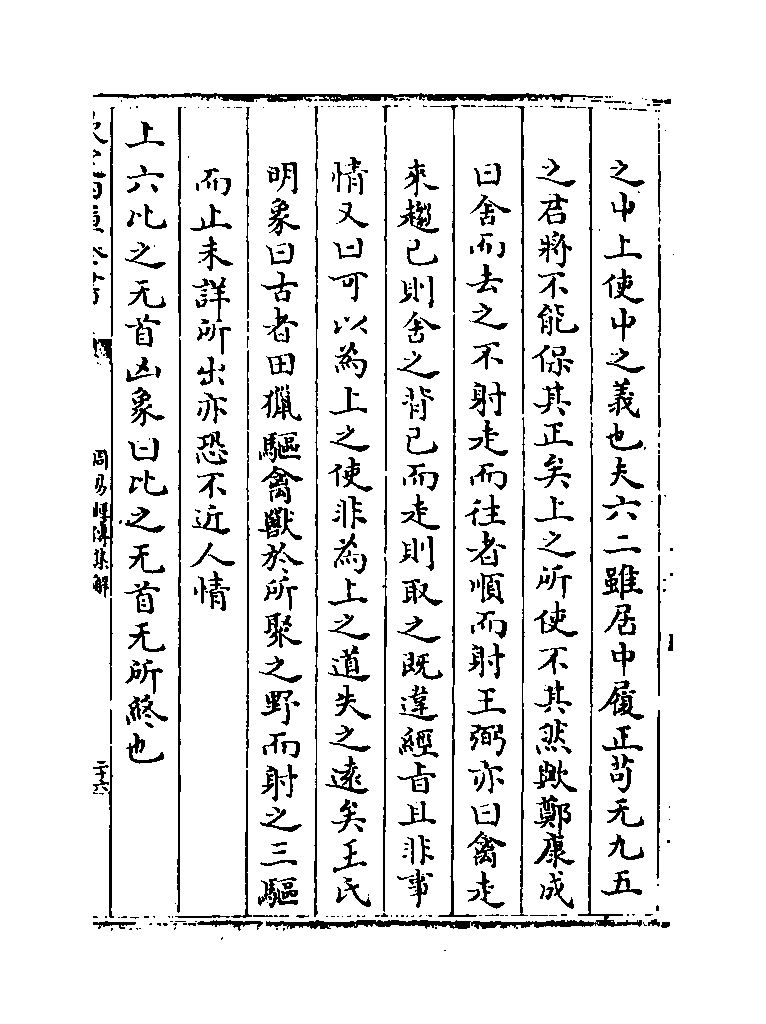 之中上使中之義也夫六二雖居中履正苟无九五
之君將不能保其正矣上之所使不其然歟鄭康成
曰舍而去之不射走而往者順而射王弼亦曰禽走
來趨已則舍之背已而走則取之既違經旨且非事
情又曰可以為上之使非為上之道失之逺矣王氏
明象曰古者田獵驅禽獸於所聚之野而射之三驅
而止未詳所出亦恐不近人情
上六比之无首凶象曰比之无首无所終也
周易經傳集解
二十六